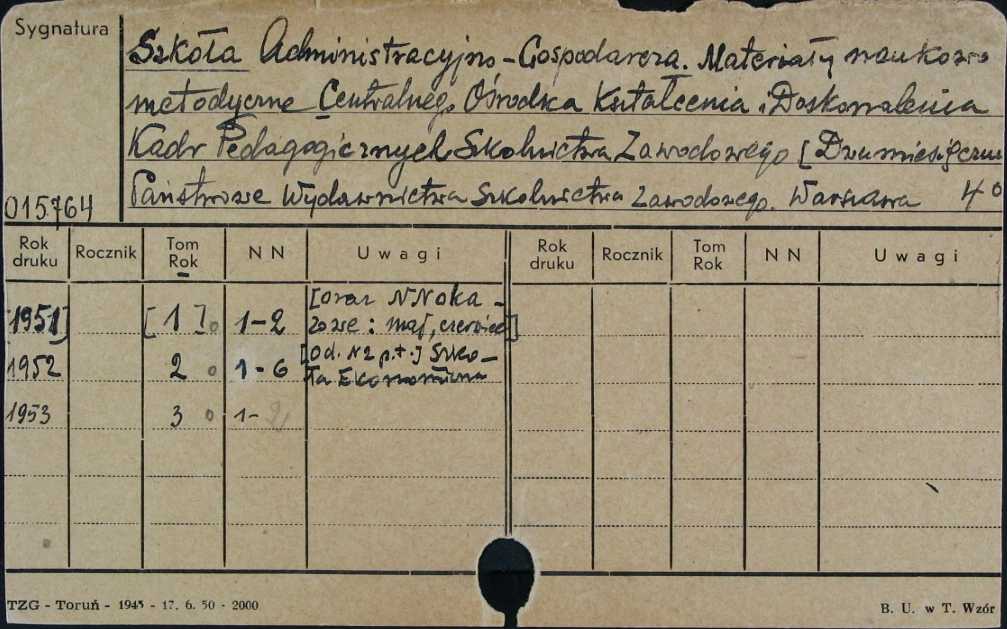 Sygnatura
Szkoła Administracyjno-Gospodarcza. Materiały naukowo
metodyczne Centralnego Ośrodka Kształcenia i Doskonalenia
Kadr Pedagogicznych Szkolnictwa Zawodowego [Dwumiesięczn
Państwowe Wydawnictwa Szkolnictwa Zawodowego. Warszawa 4°
015764
Rok druku Rocznik Tom Rok N N Uwagi Rok druku Rocznik Tom Rok N N Uwagi
[1951] [1] 1-2 [oraz NN oka-
zowe: maj, czerwiec]
1952 2 1-6 [Od N2 p.t.] Szko-
ła Ekonomiczna
1953 3 1-
TZG - Toruń - 1945 - 17. 6. 50 - 2000 B. U. w T. Wzór